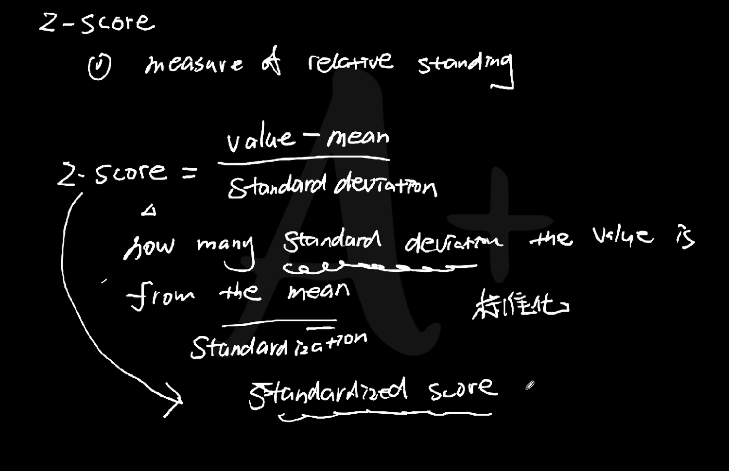 Z-score
① measure of relative standing
value - mean
Z-score =
standard deviation
how many standard deviation the value is
from the mean
标准化
Standardization
Standardized score
A+